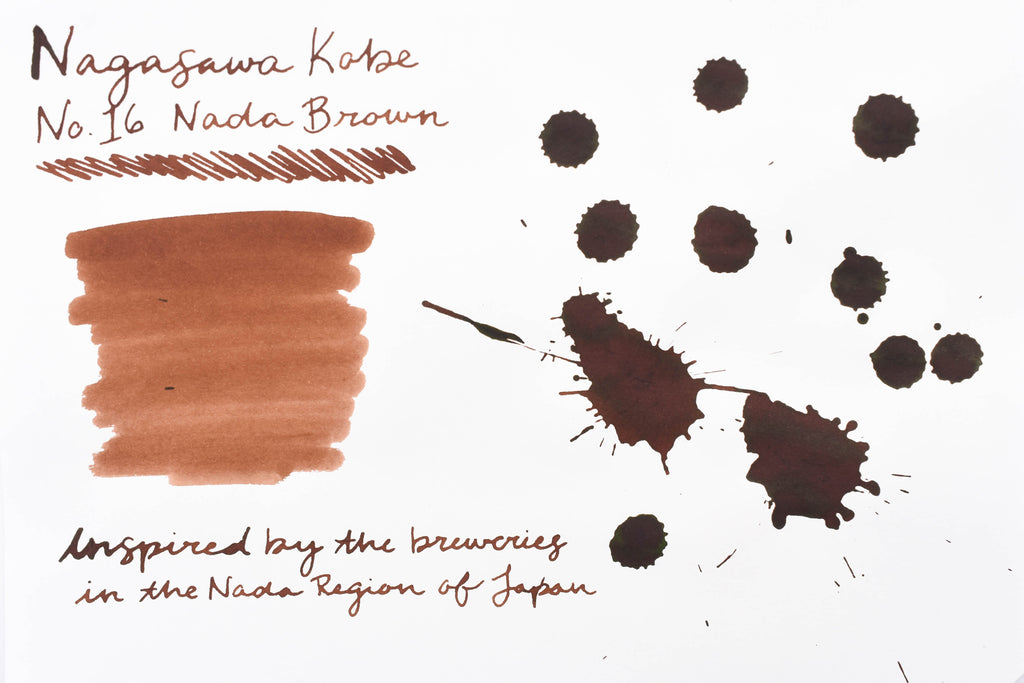 Nagasawa Kobe
No. 16 Nada Brown
Inspired by the breweries
in the Nada Region of Japan